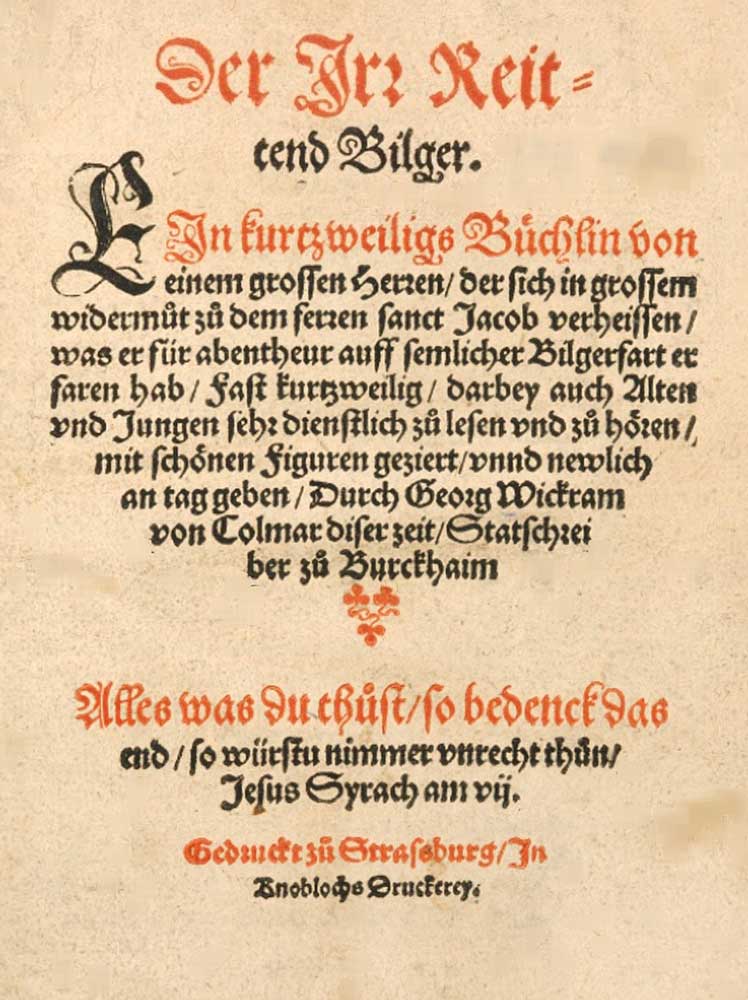 Der Jrꝛ Reit⸗
tend Bilger.
EJn kurtzweiligs Buͤchlin von
einem groſſen Herꝛen/ der ſich in groſſem
widermuͦt zuͦ dem ferꝛen ſanct Jacob verheiſſen/
was er fuͤr abentheur auff ſemlicher Bilgerfart er
faren hab/ Faſt kurtzweilig/ darbey auch Alten
vnd Jungen ſehꝛ dienſtlich zuͦ leſen vnd zuͦ hoͤꝛen/
mit ſchoͤnen Figuren geziert/ vnnd newlich
an tag geben/ Durch Geoꝛg Wickram
von Colmar diſer zeit/ Statſchꝛei
ber zuͦ Burckhaim
Alles was du thuͦſt/ ſo bedenck das
end/ ſo wuͤrſtu nimmer vnrecht thuͦn/
Jeſus Syrach am vij.
Gedꝛuckt zuͦ Straſsburg/ Jn
Knoblochs Dꝛuckerey.